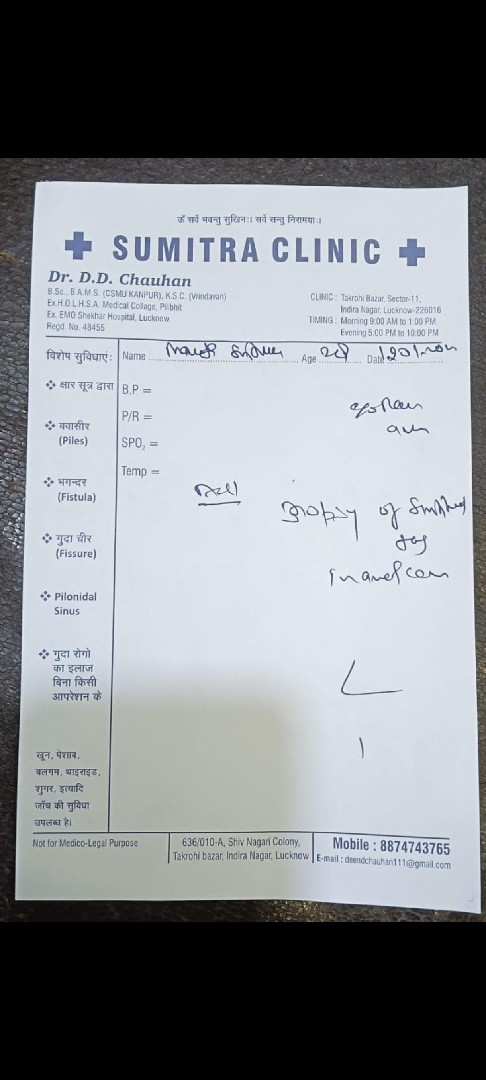 ॐ सर्वे भवन्तु सुखिनः। सर्वे सन्तु निरामयाः।
SUMITRA CLINIC
Dr. D.D. Chauhan
B.Sc., B.A.M.S. (CSMU KANPUR), K.S.C. (Vrindavan)
Ex.H.O L.H.S.A. Medical Collage, Pilibhit
Ex. EMO Shekhar Hospital, Lucknow
Regd. No. 48455
CLINIC : Takrohi Bazar, Sector-11,
Indira Nagar, Lucknow-226016
TIMING : Morning 9:00 AM to 1:00 PM
Evening 5:00 PM to 10:00 PM
Name Age Date
विशेष सुविधाएं:
क्षार सूत्र द्वारा
बवासीर
(Piles)
भगन्दर
(Fistula)
गुदा चीर
(Fissure)
Pilonidal
Sinus
गुदा रोगो
का इलाज
बिना किसी
आपरेशन के
खून, पेशाब,
बलगम, थाइराइड,
शुगर, इत्यादि
जाँच की सुविधा
उपलब्ध है।
B.P =
P/R =
SPO₂ =
Temp =
of
Not for Medico-Legal Purpose
636/010-A, Shiv Nagari Colony,
Takrohi bazar, Indira Nagar, Lucknow
Mobile : 8874743765
E-mail : deendchauhan111@gmail.com